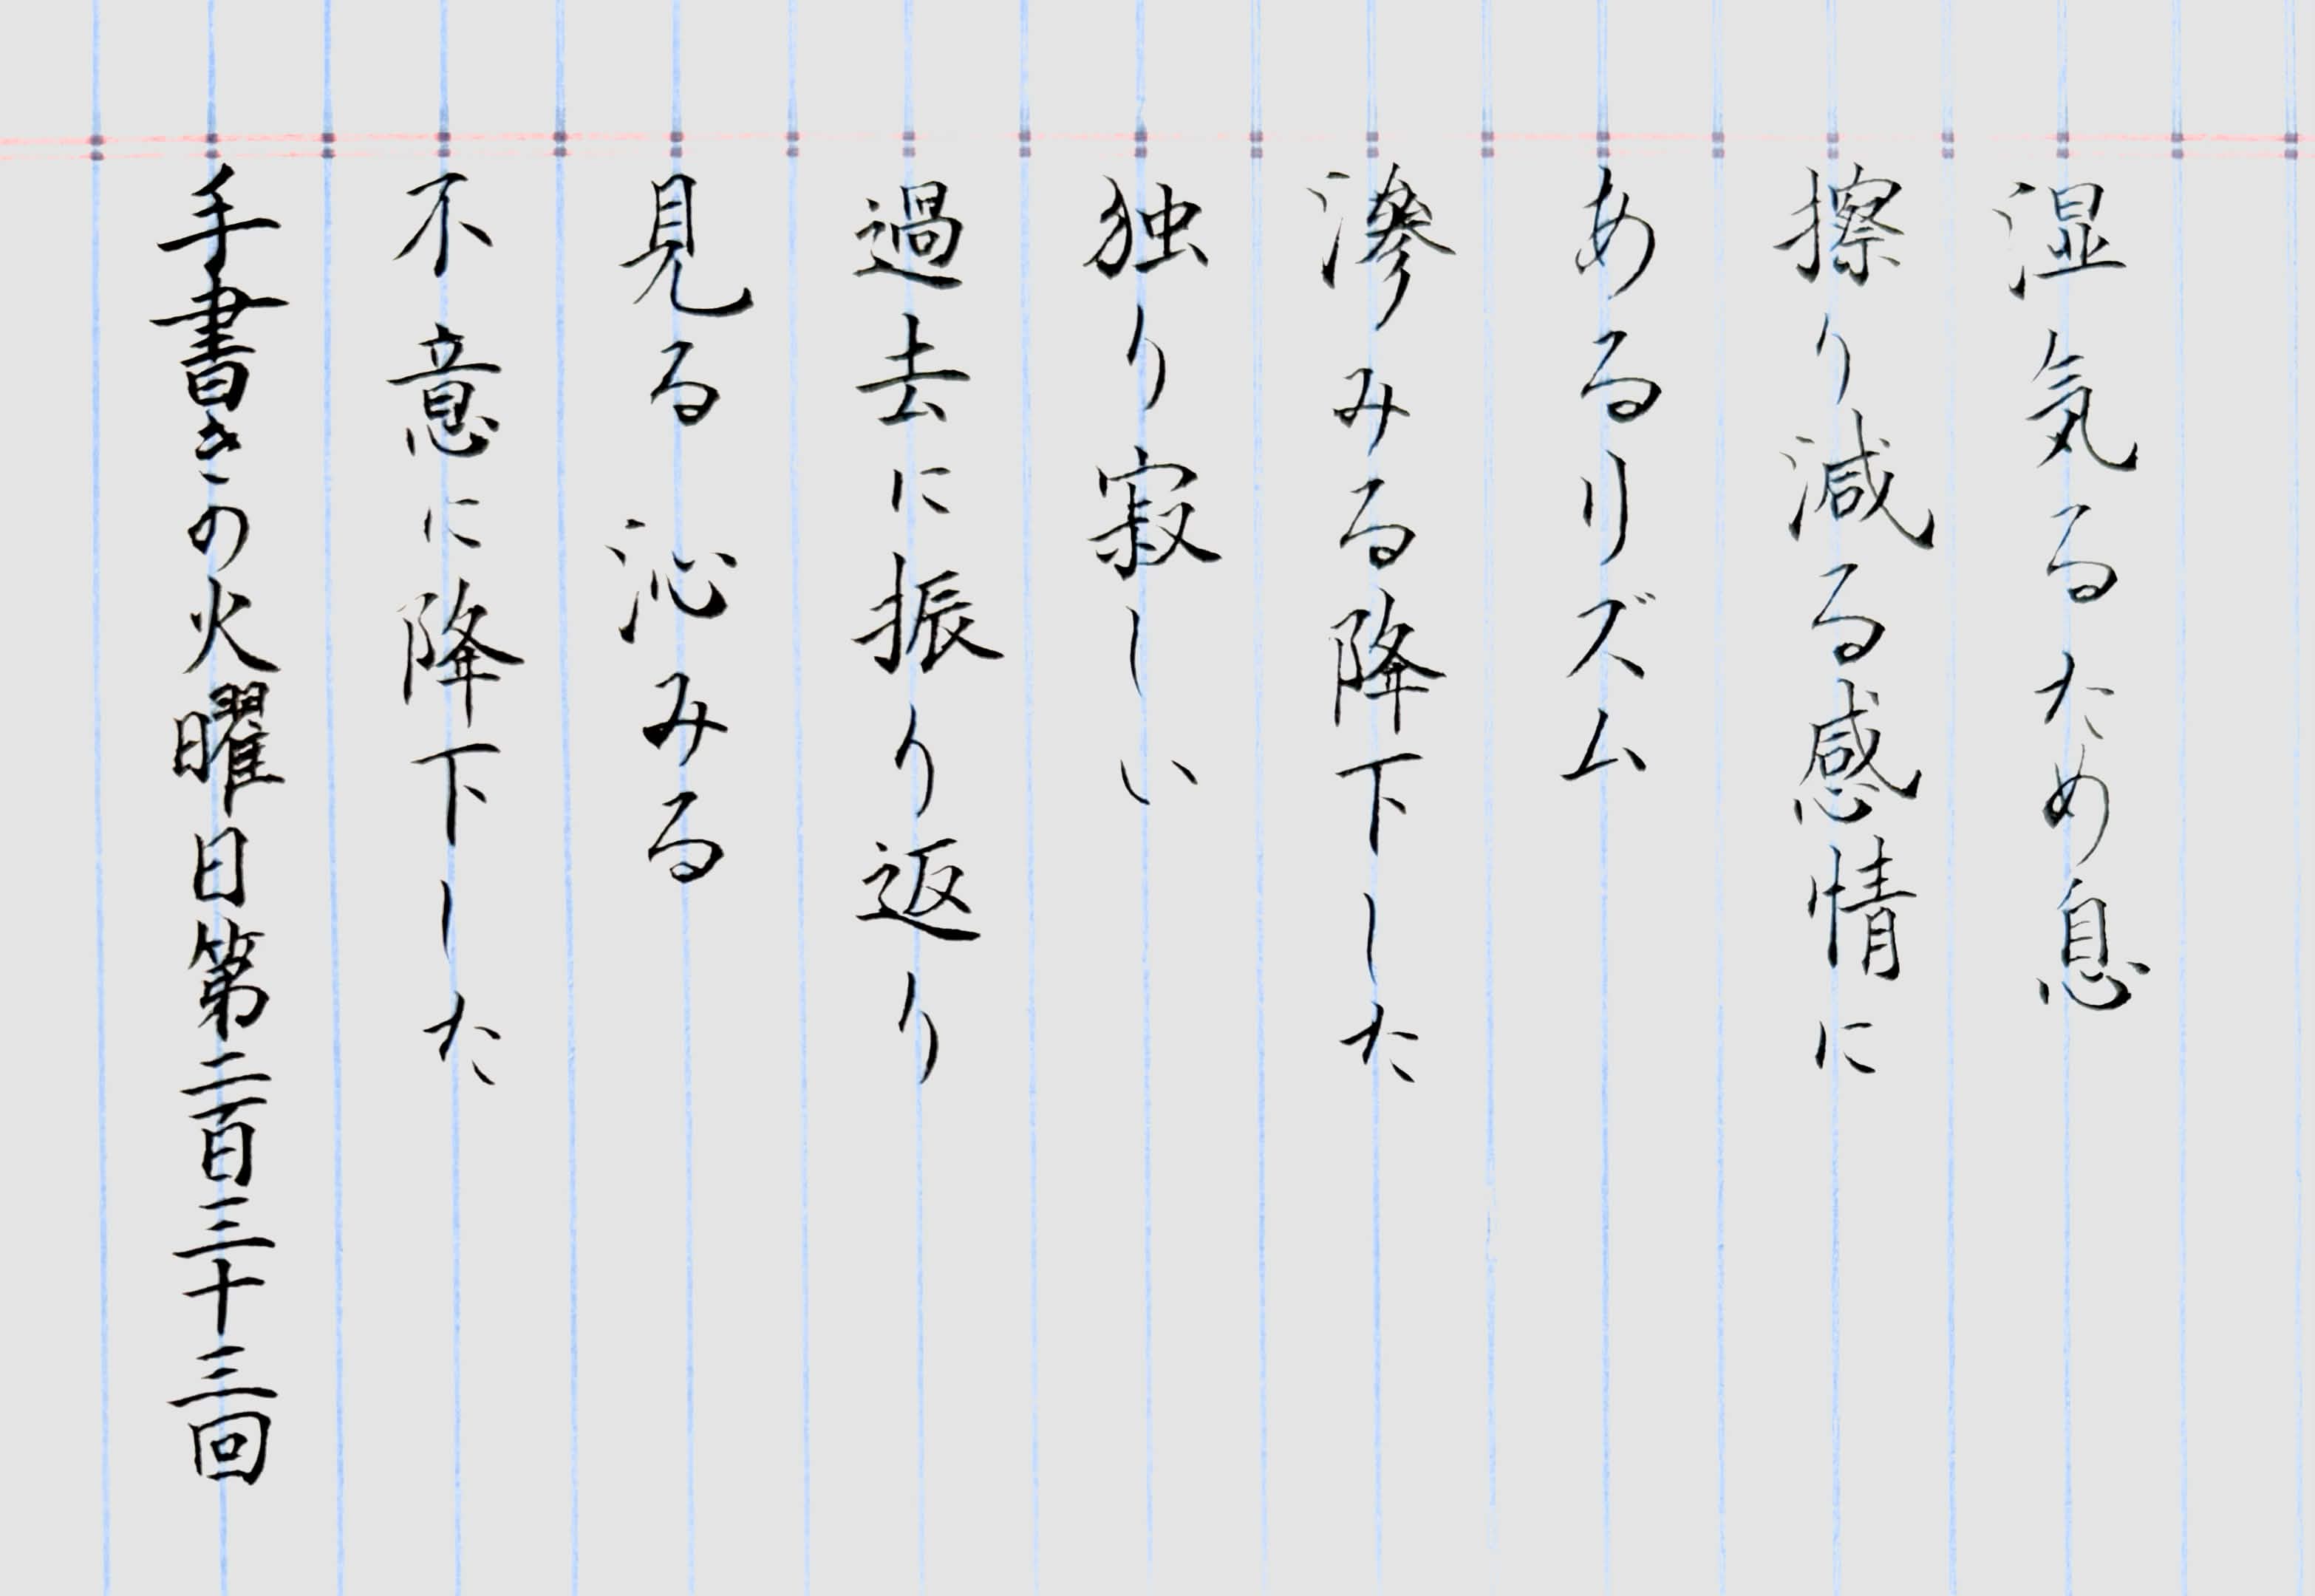 湿気るため息
擦り減る感情に
あるリズム
滲みる降下した
独り寂しい
過去に振り返り
見る沁みる
不意に降下した
手書きの火曜日第二百三十三回